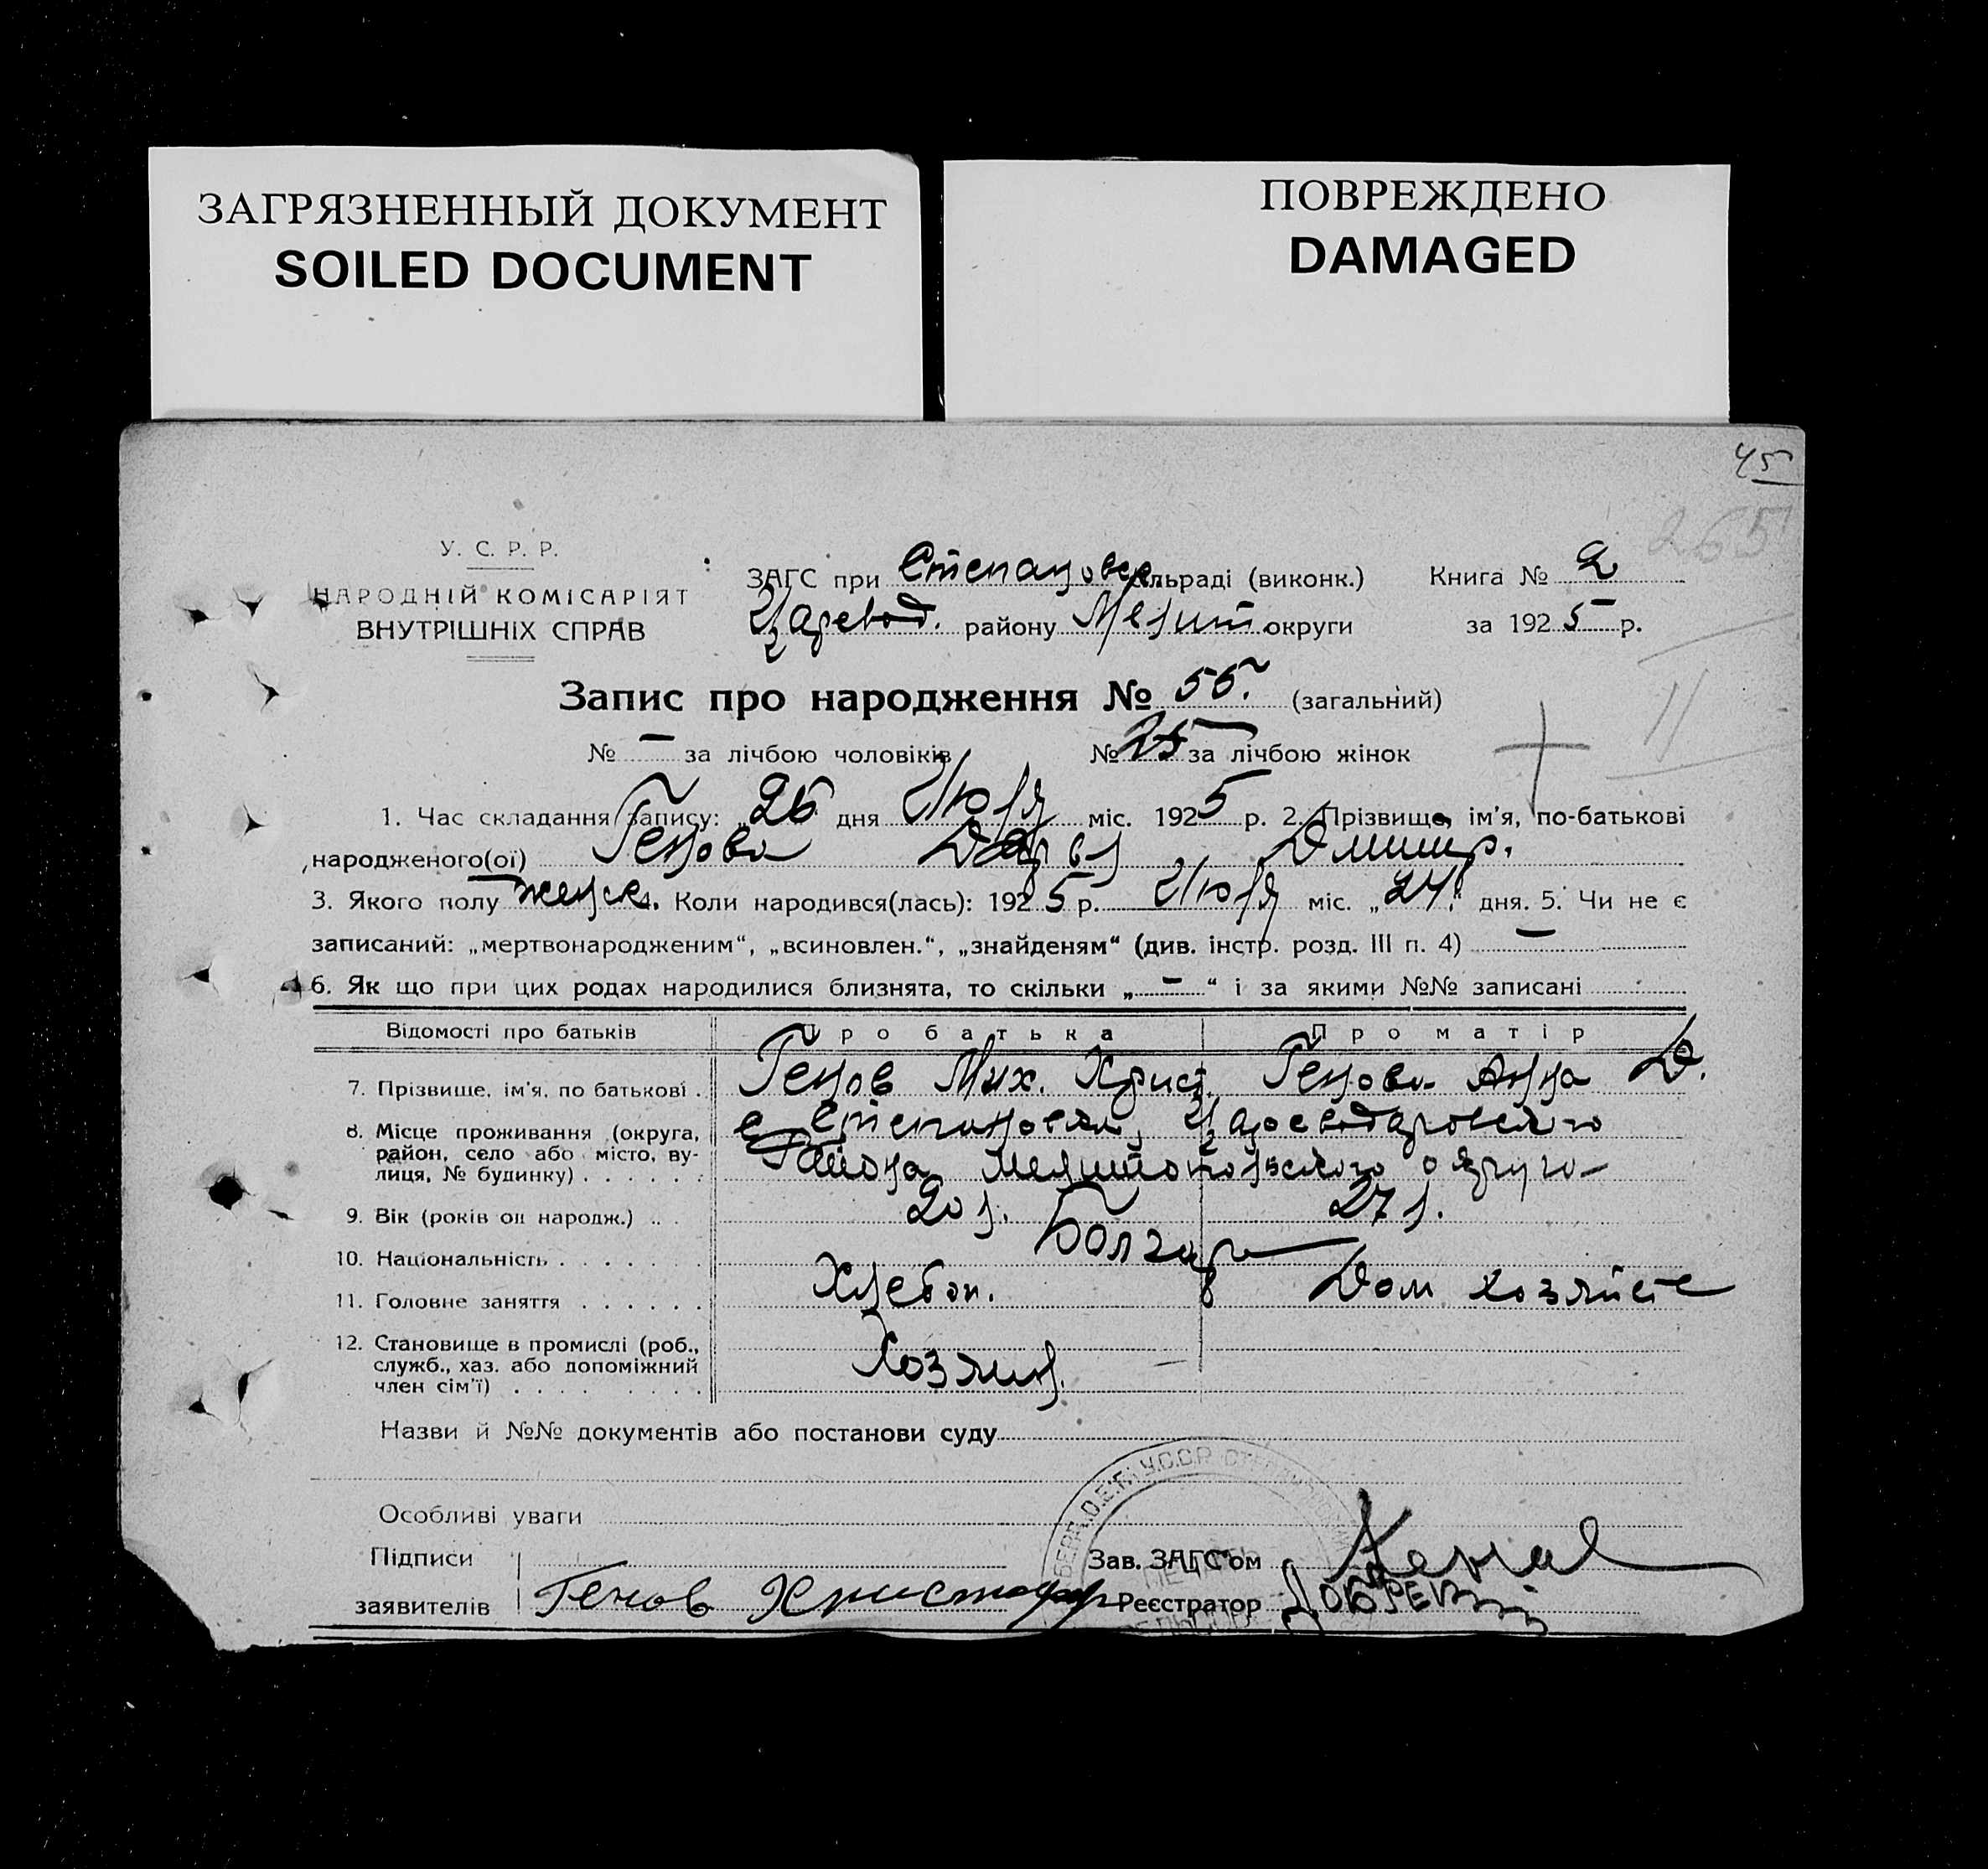 ЗАГРЯЗНЕННЫЙ ДОКУМЕНТ
SOILED DOCUMENT
ПОВРЕЖДЕНО
DAMAGED
45
265
У. С. Р. Р.
НАРОДНІЙ КОМІСАРІЯТ
ВНУТРІШНІХ СПРАВ
ЗАГС при Степановск. сільраді (виконк.) Книга № 2
Царевод. району Мелит. округи за 1925 р.
Запис про народження № 55. (загальний)
11
№ – за лічбою чоловіків № 25 за лічбою жінок
1. Час складання запису: „26 дня Июля міс. 1925 р. 2. Прізвище, ім'я, по-батькові
народженого(ої) Генова Дарья Дмитр.
3. Якого полу женск. Коли народився(лась): 1925 р. Июля міс. „24“ дня. 5. Чи не є
записаний: „мертвонародженим“, „всиновлен.“, „знайденям“ (див. інстр. розд. III п. 4) –
6. Як що при цих родах народилися близнята, то скільки „ – “ і за якими №№ записані
Відомості про батьків Про батька Про матір
7. Прізвище, ім'я, по батькові . Генов Мих. Крист. Генова Анна Д.
8. Місце проживання (округа, с Степановка, Цареводаровского
район, село або місто, ву- Района Мелитопольского округа
лиця, № будинку) . . . . . .
9. Вік (років од народж.) . . . 20 л. 27 л.
10. Національність . . . . . . . Болгары
11. Головне заняття . . . . . . Хлебоп. Дом хозяйств
12. Становище в промислі (роб.,
служб., хаз. або допоміжний Хозяин. –
член сім'ї) . . . . . . . . .
Назви й №№ документів або постанови суду
Особливі уваги
Підписи Зав. ЗАГС'ом
заявителів Генов Христофор Реєстратор
У.С.С.Р.